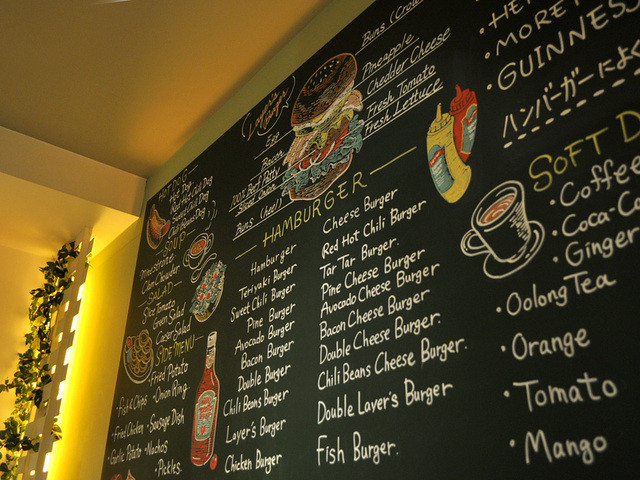 HOT DOG
SOUP
Minestrone
Clam Chowder
SALAD
Slice Tomato
Green Salad
Caesar Salad
SIDE MENU
・Fried Potato
・Fish & Chips ・Onion Ring
・Fried Chicken ・Sausage Dish
・Garlic Potato ・Nachos
・Pickles.
Egg
Bacon
100% Beef Patty
Sliced Onion
Buns (heel)
Buns (Crow
Pineapple
Chedder Cheese
Fresh Tomato
Fresh Lettuce
HAMBURGER
Hamburger
Teriyaki Burger
Sweet Chili Burger
Pine Burger
Avocado Burger
Bacon Burger
Double Burger
Chili Beans Burger
Layer's Burger
Chicken Burger
Cheese Burger
Red Hot Chili Burger
Tar Tar Burger.
Pine Cheese Burger
Avocado Cheese Burger
Bacon Cheese Burger
Double Cheese Burger.
Chili Beans Cheese Burger.
Double Layer's Burger
Fish Burger.
・HE
・MORE
・GUINNES
ハンバーガーによ
SOFT D
・Coffee
・Coca-C
・Ginger
・Oolong Tea
・Orange
・Tomato
・Mango